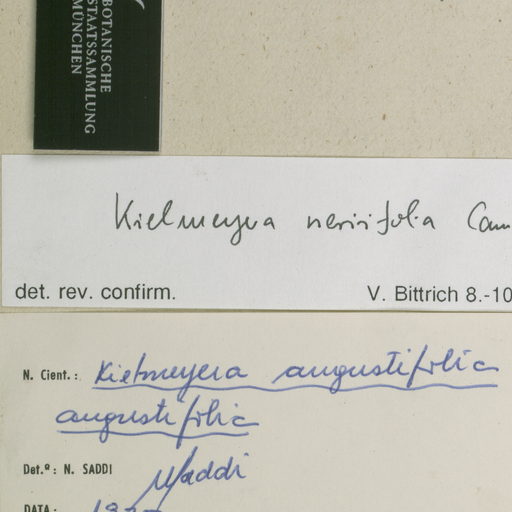 BOTANISCHE
STAATSSAMMLUNG
MÜNCHEN
Kielmeyera neriifolia Cam
det. rev. confirm. V. Bittrich 8.-10
N. Cient.: Kielmeyera angustifolia
angustifolia
Det.ª: N. SADDI NSaddi
DATA: